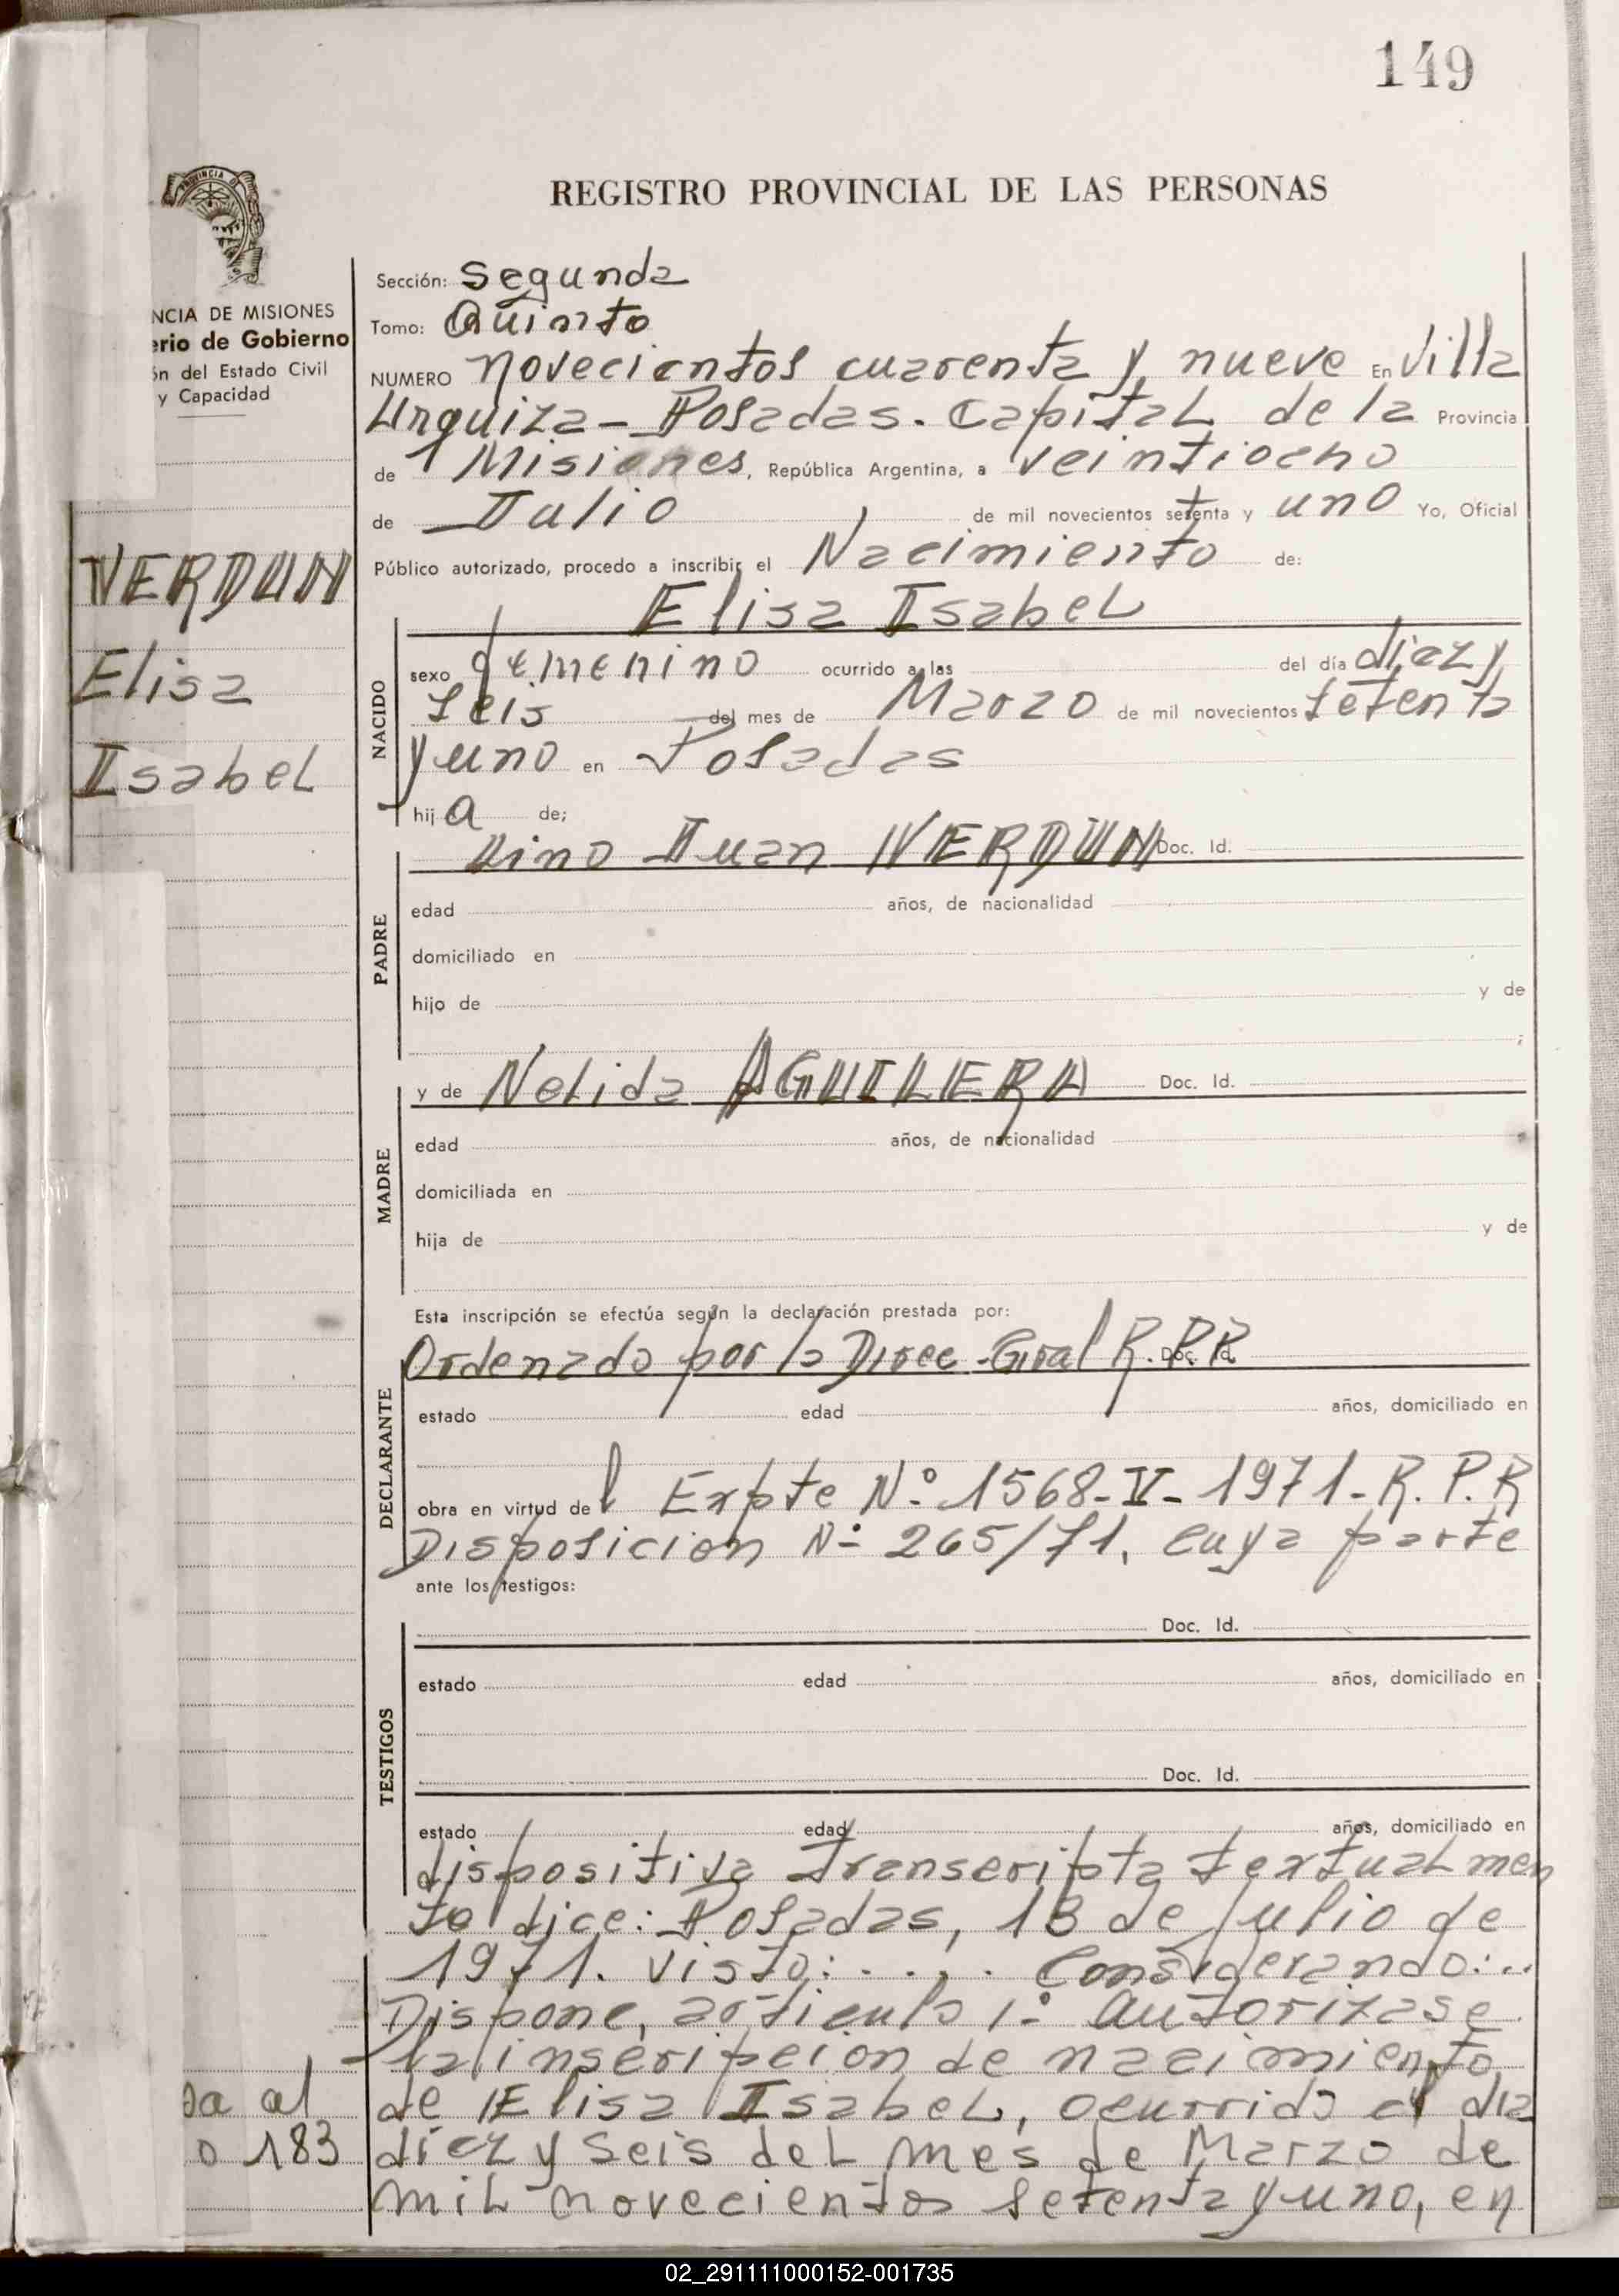 149
PROVINCIA D
REGISTRO PROVINCIAL DE LAS PERSONAS
NCIA DE MISIONES
erio de Gobierno
ón del Estado Civil
y Capacidad
Sección: Segunda
Tomo: Quinto
NUMERO novecientos cuarenta y nueve En Villa
Urquiza - Posadas. Capital de la Provincia
de Misiones, República Argentina, a veintiocho
de Julio de mil novecientos setenta y uno Yo, Oficial
Público autorizado, procedo a inscribir el Nacimiento de:
VERDUN
Elisa
Isabel
Elisa Isabel
NACIDO
sexo femenino ocurrido a las del día diez y
seis del mes de Marzo de mil novecientos setenta
y uno en Posadas
hij a de;
PADRE
Juan VERDUN Doc. Id.
edad años, de nacionalidad
domiciliado en
hijo de y de
;
MADRE
y de Nelida AGUILERA Doc. Id.
edad años, de nacionalidad
domiciliada en
hija de y de
DECLARANTE
Esta inscripción se efectúa según la declaración prestada por:
Ordenado por la Direc. Gral R.P.P. Doc. Id.
estado edad años, domiciliado en
obra en virtud del Expte N° 1568-V-1971-R.P.P.
Disposicion N° 265/71, cuya parte
ante los testigos:
TESTIGOS
Doc. Id.
estado edad años, domiciliado en
Doc. Id.
estado edad años, domiciliado en
dispositiva transcripta textualmen
te dice: Posadas, 13 de Julio de
1971. Visto: . . . . Considerando: ..
Dispone, articulo 1° autorizase
la inscripcion de nacimiento
de Elisa Isabel, ocurrido el dia
diez y seis del mes de Marzo de
mil novecientos setenta y uno, en
da al
o 183
02_291111000152-001735